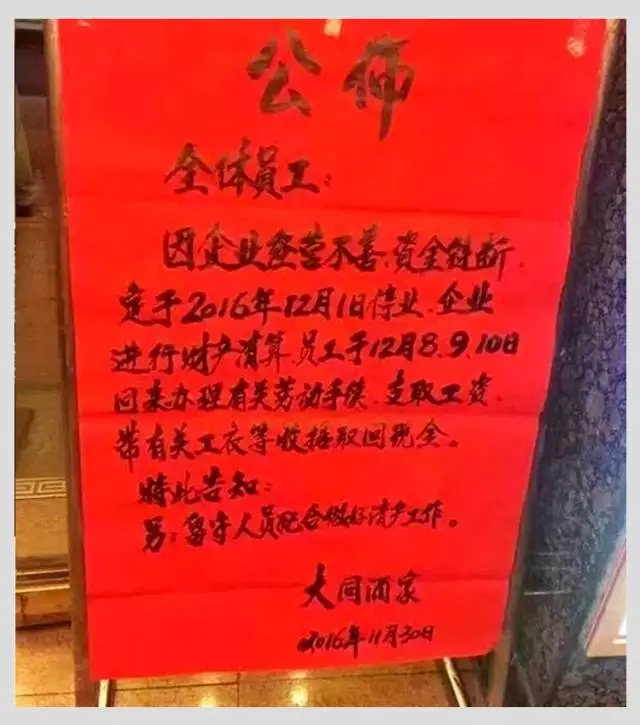 公佈
全体员工:
因企业经营不善、資金链断,
定于2016年12月1日停业、企业
进行财产清算、员工于12月8、9、10日
回来办理有关劳动手续、支取工资、
带有关工衣等收据取回现金。
特此告知:
另:留守人员配合做好清产工作。
大同酒家
2016年11月30日